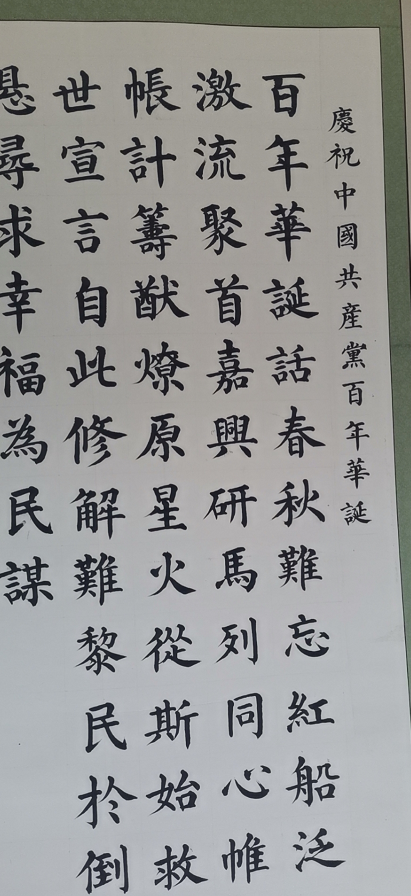 慶祝中國共産黨百年華誕
百年華誕話春秋難忘紅船泛
激流聚首嘉興研馬列同心帷
帳計籌猷燎原星火從斯始救
世宣言自此修解難黎民於倒
懸尋求幸福為民謀